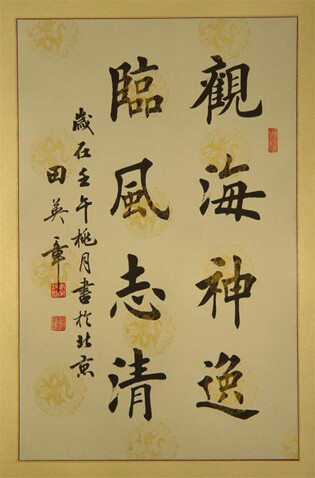 觀海神逸
臨風志清
歲在壬午桃月書於北京
田英章